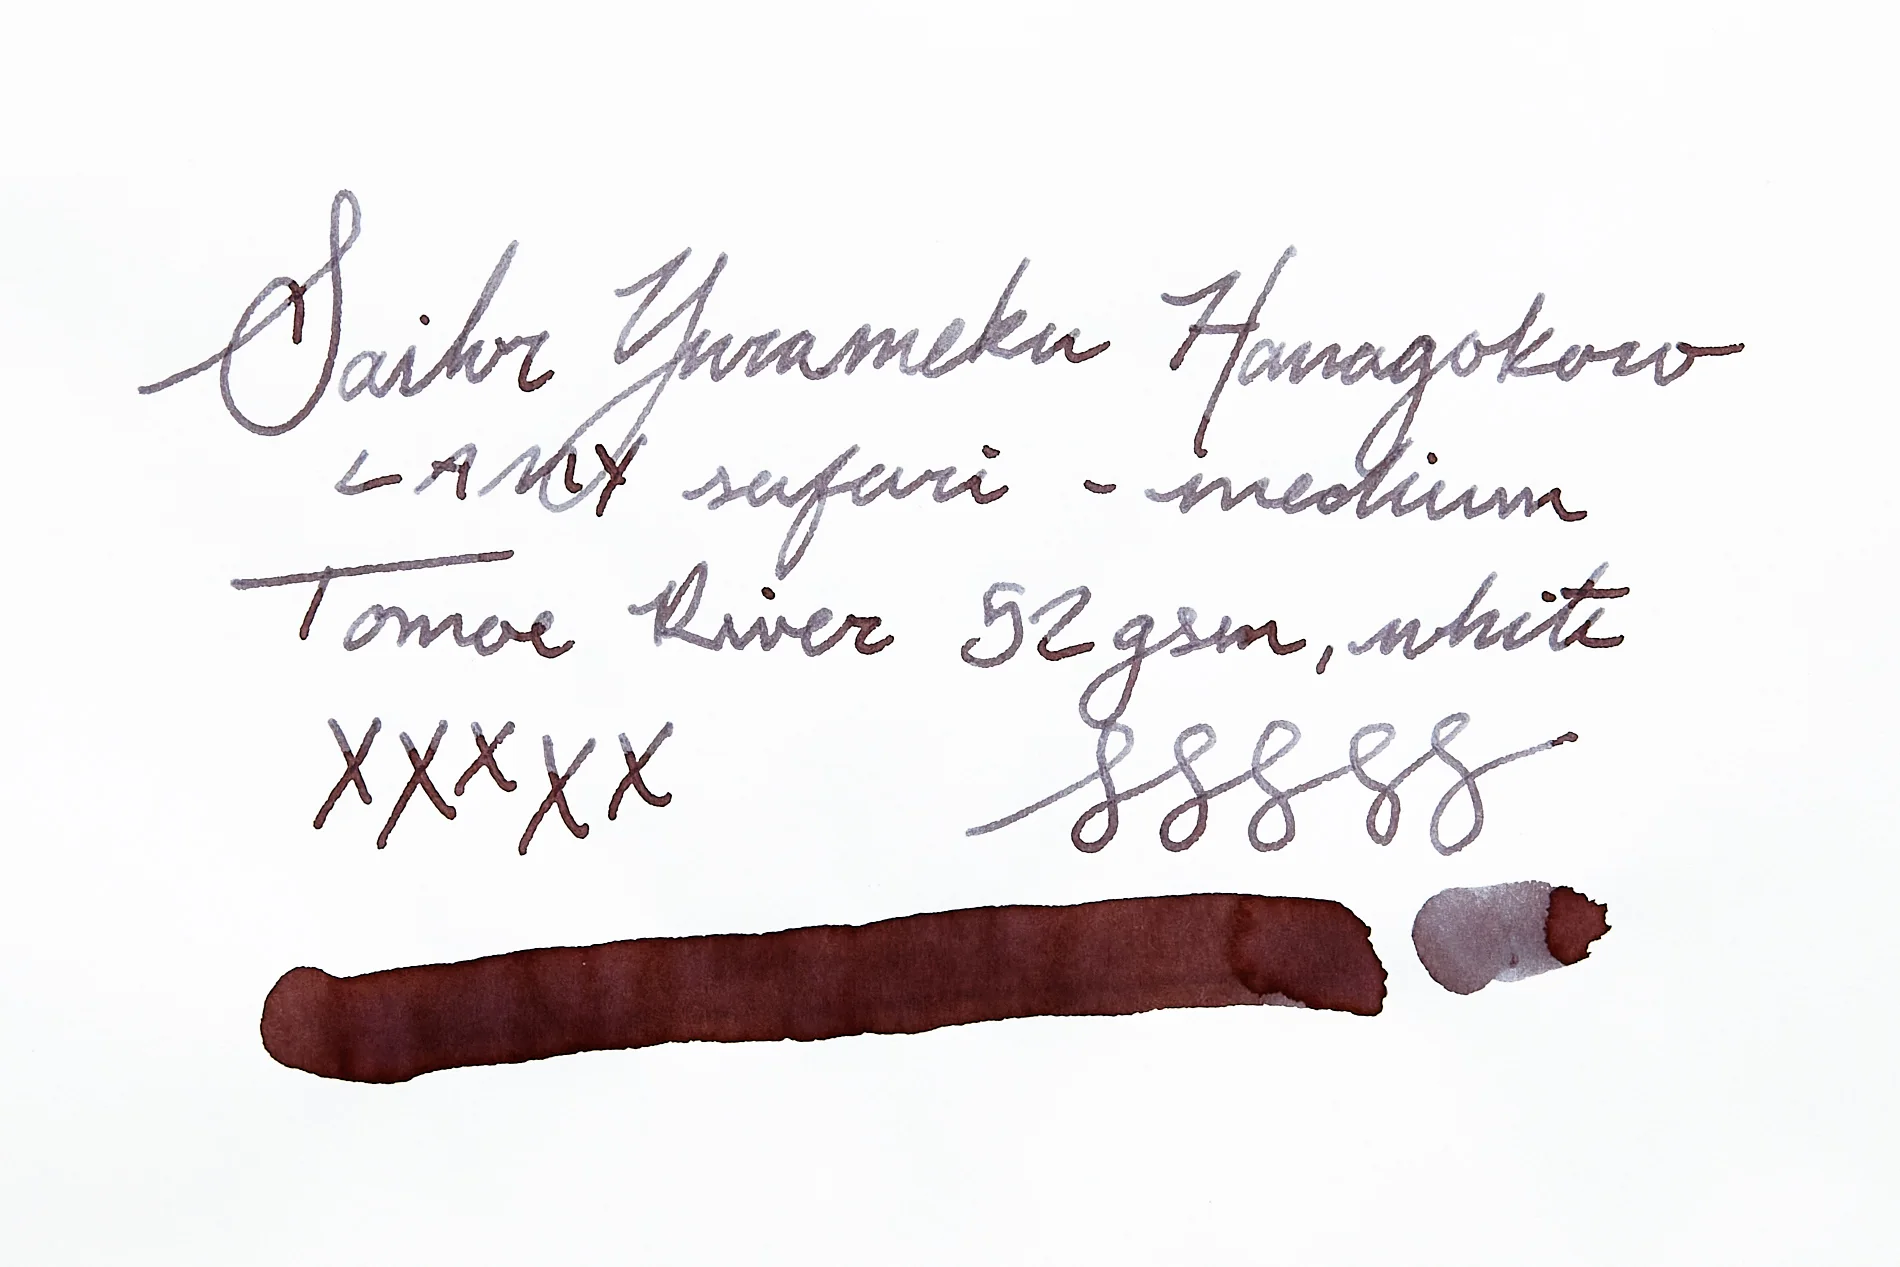 Sailor Yurameku Hanagokoro
LAMY safari - medium
Tomoe River 52 gsm, white
XXXXX